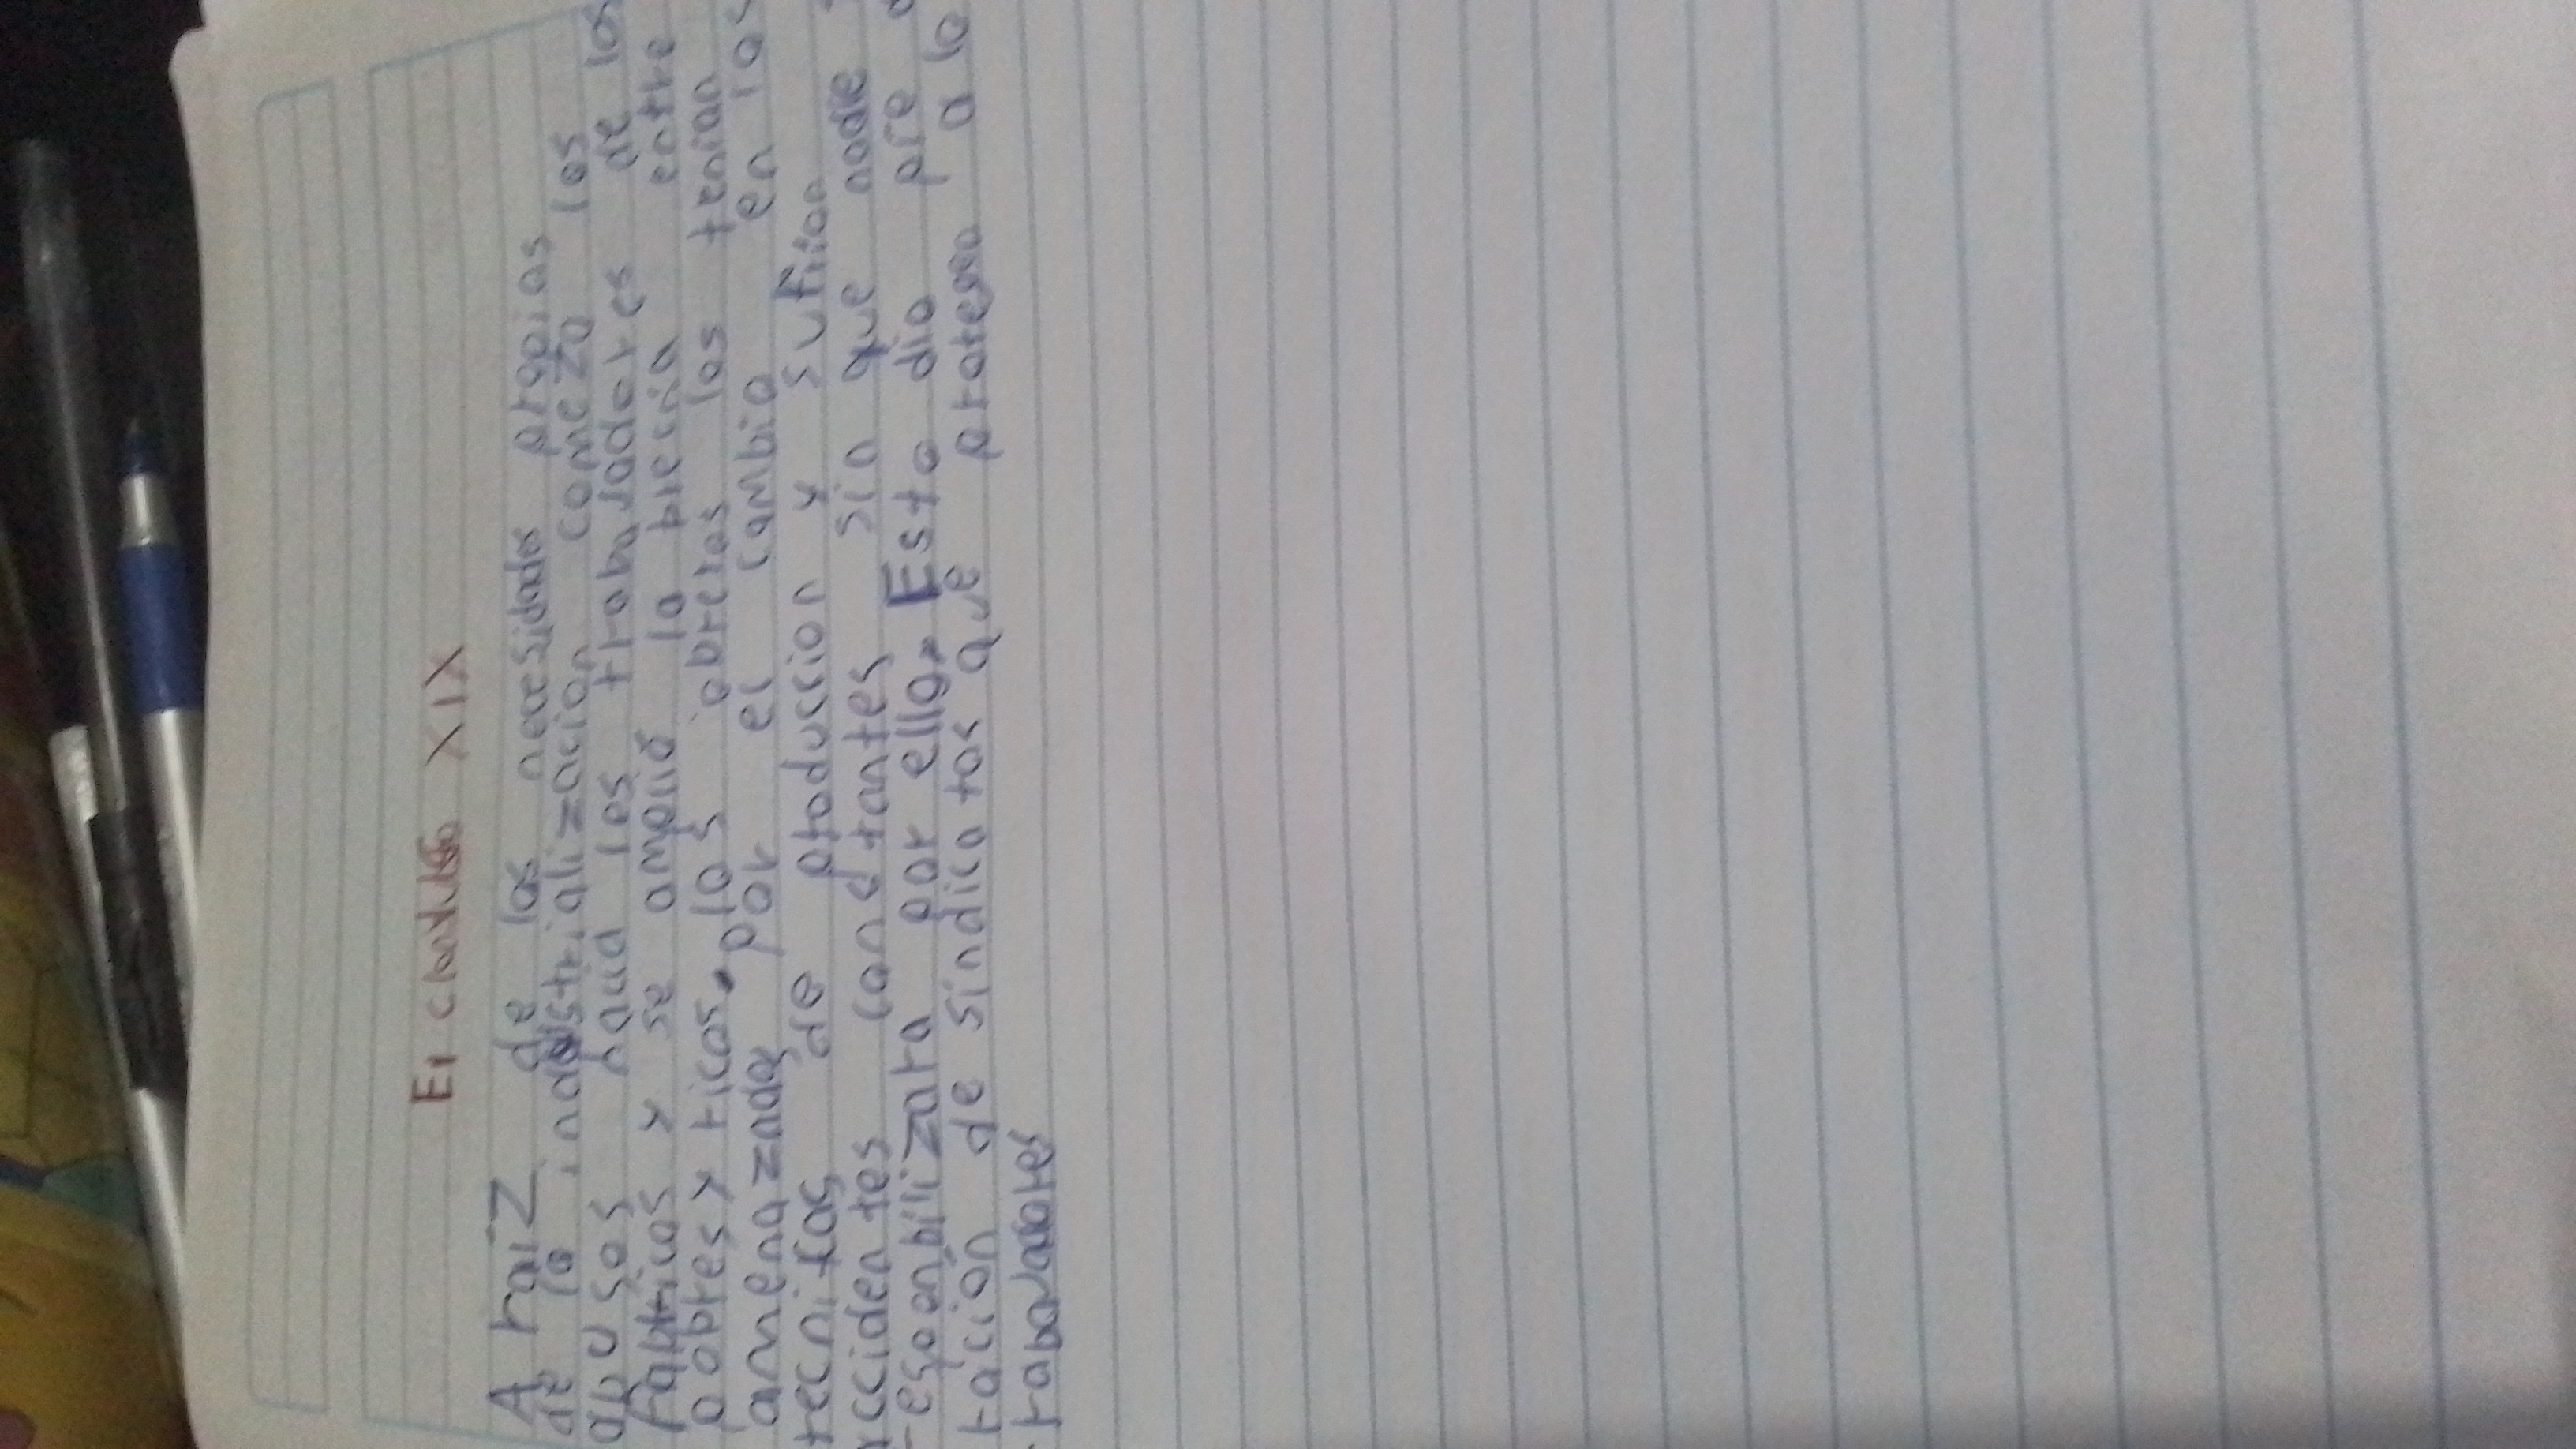 El XIX
A raiz de las necesidades propias
de la industrialización comezo los
abusos hacia los trabajadores de los
fabricas y se amplió la brecha entre
pobres y ricos. los obreros los tenian
amenazados por el cambio en los
tecnicas de produccion y sufrion
accidentes constantes sin que nadie
responbilizara por ello. Esto dio pie
ración de sindicatos que protegen a lo
trabajadores